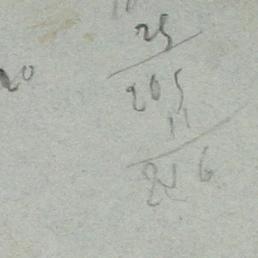 25
20
205
11
216